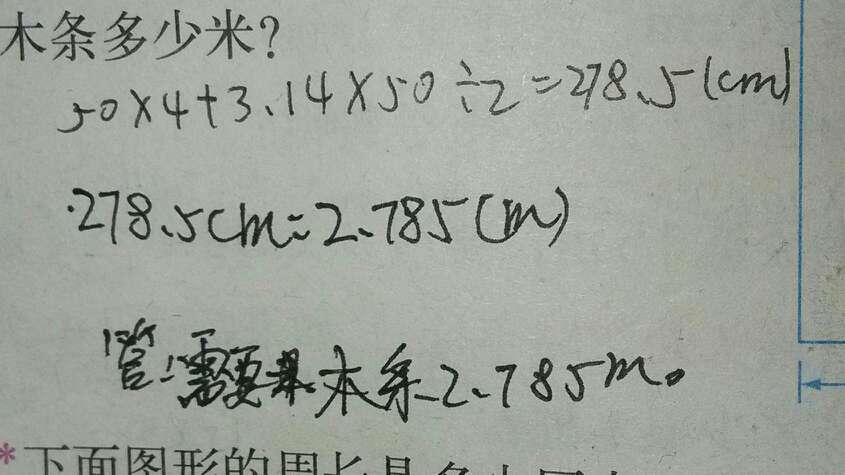 木条多少米?
50×4+3.14×50÷2=278.5(cm)
278.5cm=2.785(m)
答:需要木条2.785m。
*下面图形的周长是多少厘米